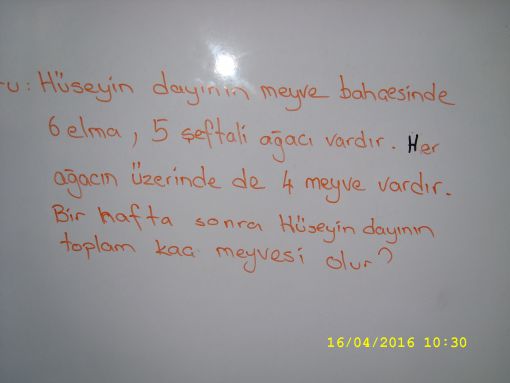 -u: Hüseyin dayının meyve bahçesinde
6 elma, 5 şeftali ağacı vardır. Her
ağacın üzerinde de 4 meyve vardır.
Bir hafta sonra Hüseyin dayının
toplam kaç meyvesi olur?
16/04/2016 10:30